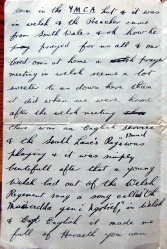 down in the YMCA hut & it was
in welsh & the Preacher came
from South Wales & oh how he
prayed for us all & our
loved ones at home a prayer
meeting in welsh seems a lot
sweeter to us down here than
it did when we were home
after the welsh meeting
there was an English service
& the South Lanc's Regs Band was
playing & it was simply
beautifull after that a young
Welsh lad out of the Welsh
Regiment sang a song called
in Welsh
& English it made me
full of Hiraeth you can